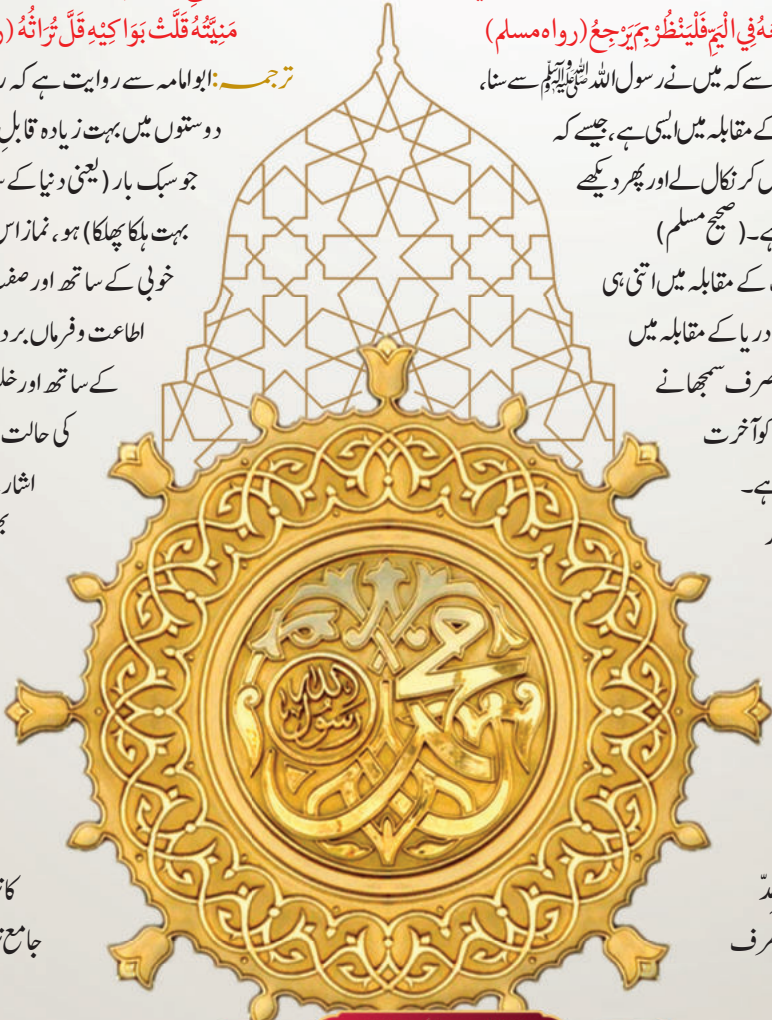 فِي الْيَمِّ فَلْيَنْظُرْ بِمَ يَرْجِعُ (رواه مسلم)
سے کہ میں نے رسول اللہ ﷺ سے سنا،
کے مقابلہ میں ایسی ہے، جیسے کہ
کر نکال لے اور پھر دیکھے
ہے۔ (صحیح مسلم)
کے مقابلہ میں اتنی ہی
دریا کے مقابلہ میں
صرف سمجھانے
کو آخرت
ہے۔
مَنِيَّتُهُ قَلَّتْ بَوَاكِيْهِ قَلَّ تُرَاثُهُ (
ترجمہ: ابوامامہ سے روایت ہے کہ
دوستوں میں بہت زیادہ قابلِ
جو سبک بار (یعنی دنیا کے
بہت ہلکا پھلکا) ہو، نماز اس
خوبی کے ساتھ اور
اطاعت و فرماں
کے ساتھ اور
کی حالت
جامع
محمد
رسول
الله